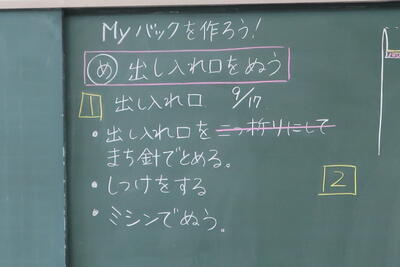 Myバックを作ろう!
め 出し入れ口をぬう
1 出し入れ口 9/17
・出し入れ口を三つ折りにして
まち針でとめる。
・しつけをする
・ミシンでぬう。
2